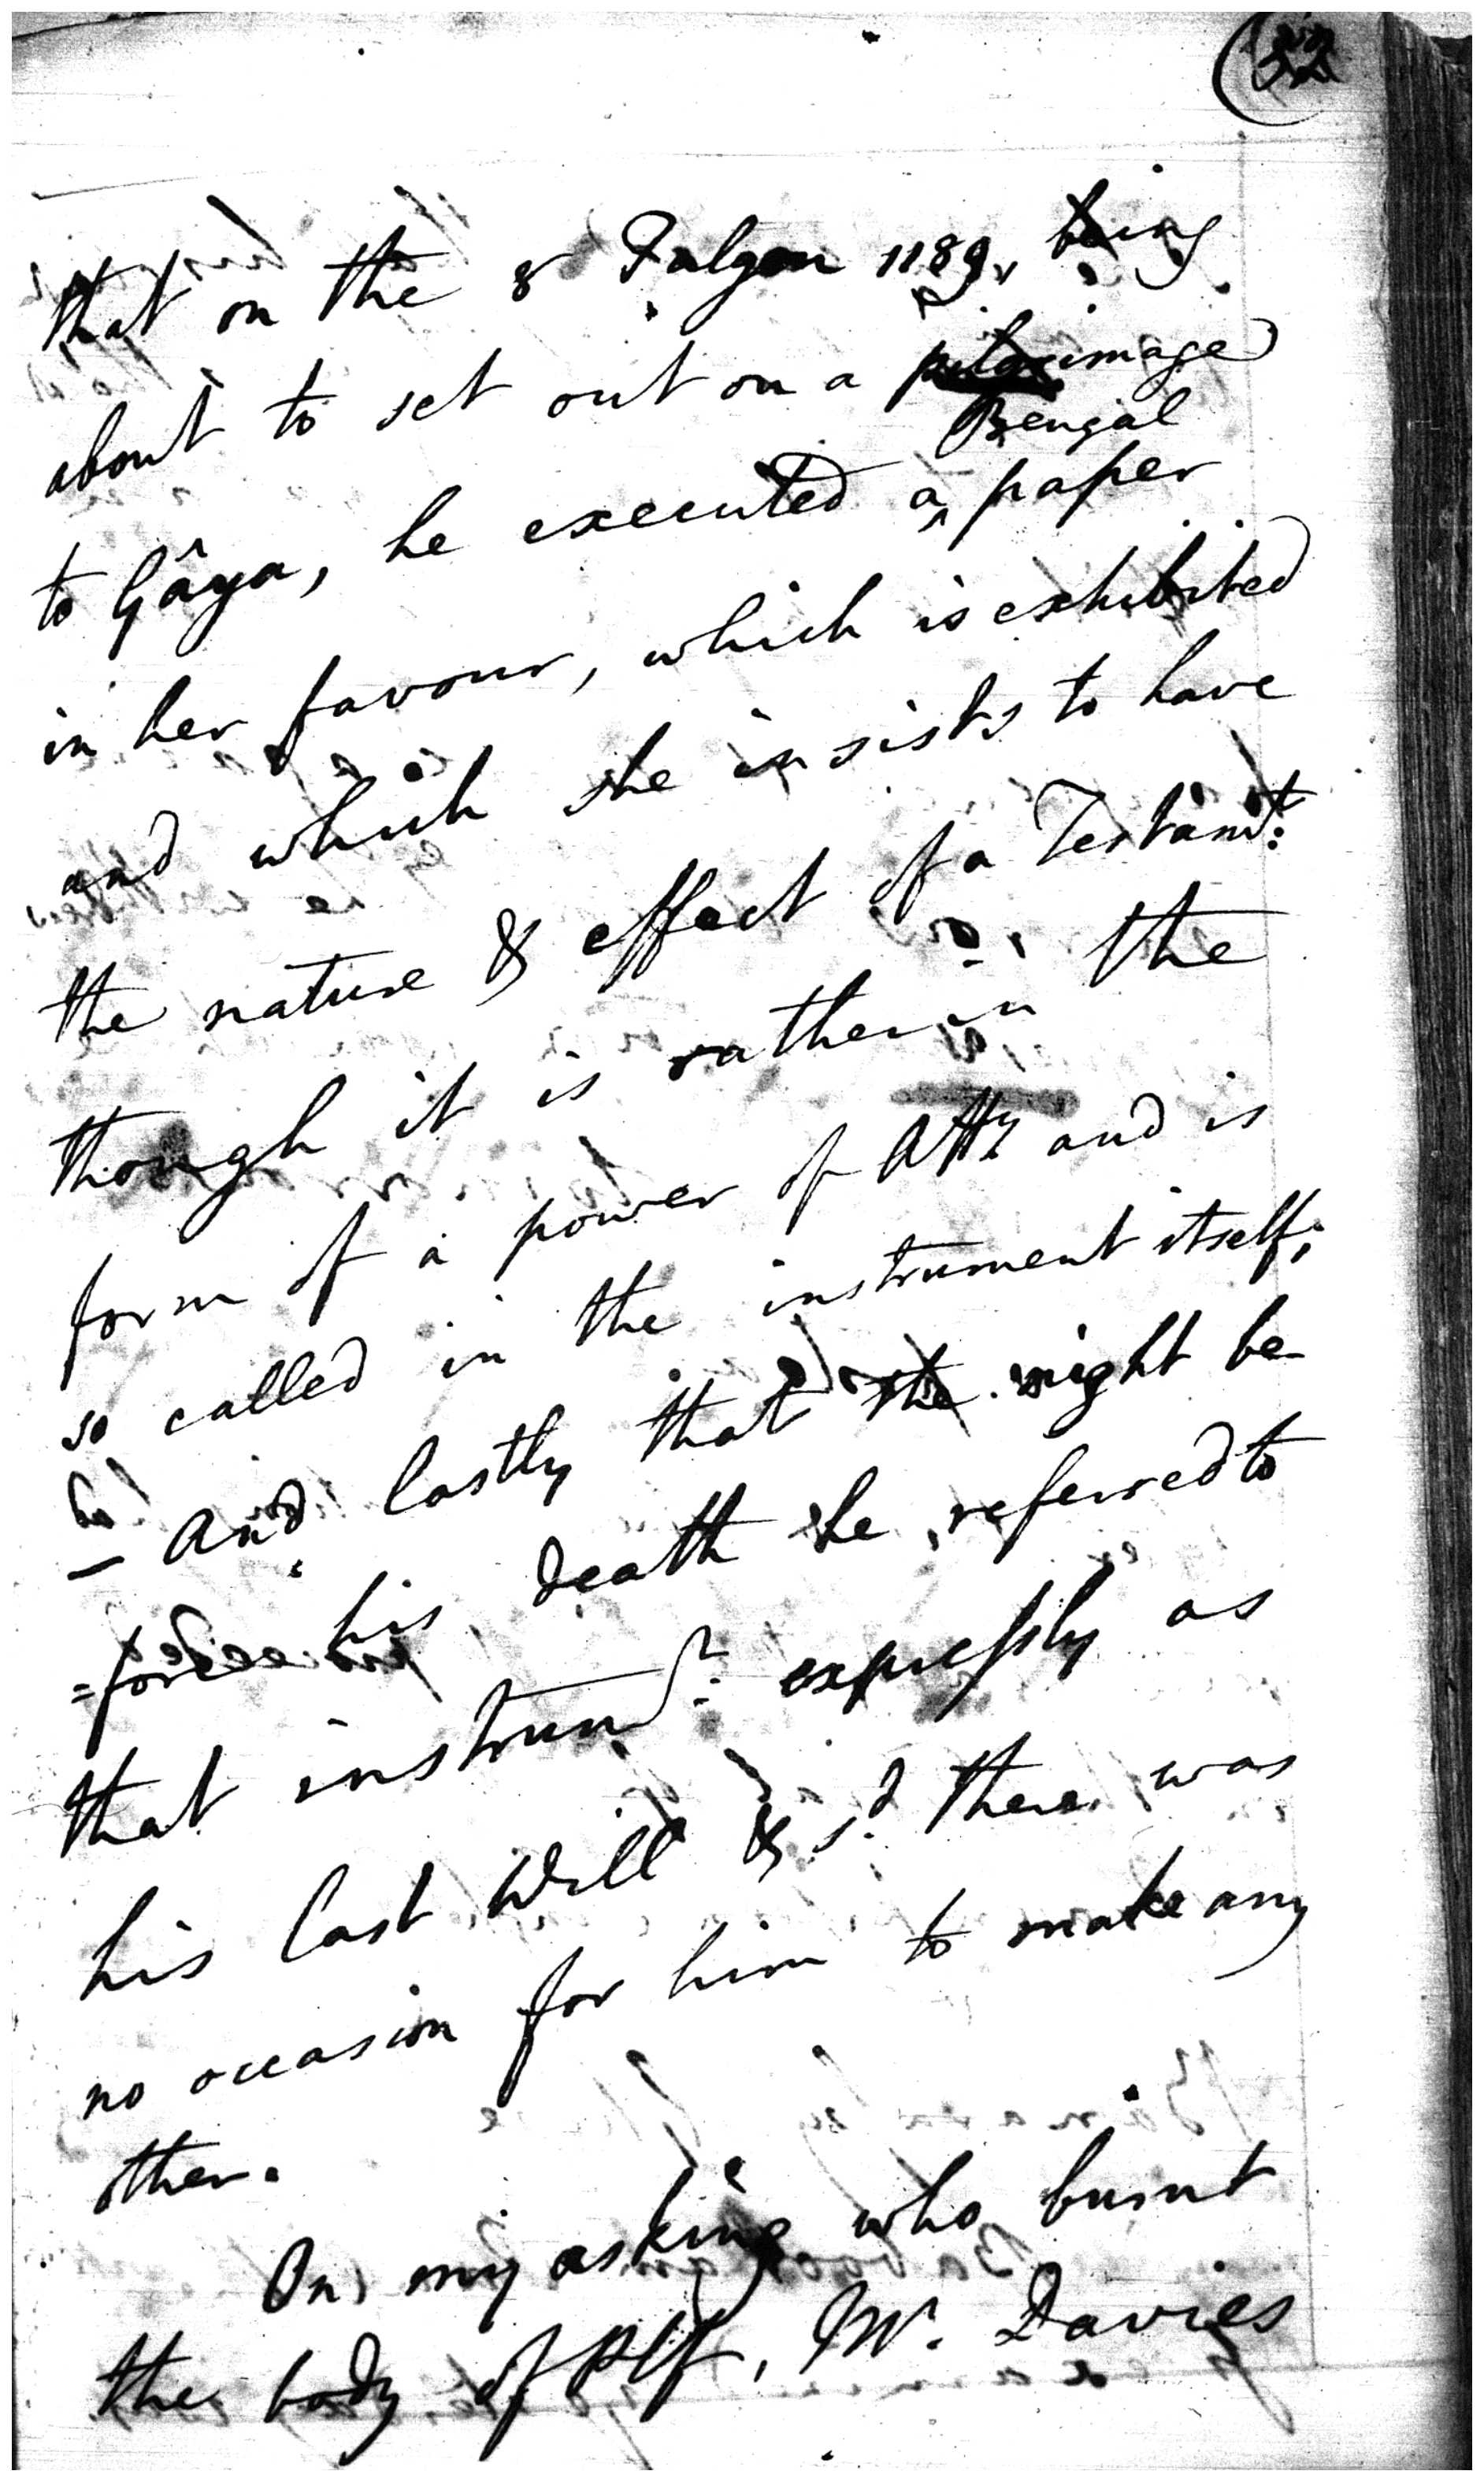 that on the 8 Falgon 1189, being
about to set out on a pilgrimage
Bengal
to Gâya, he executed a ‸ paper
in her favour, which is exhibited
and which she insists to have
the nature & effect of a Testam.t
though it is rather in the
form of a power of Att.y and is
so called in the instrument itself;
– And lastly that might be-
=fore his death he referred to
that instrum.t expressly as
his last Will & s.d there was
no occasion for him to make any
other.
On my asking who burnt
the body of Plf, Mr. Davies